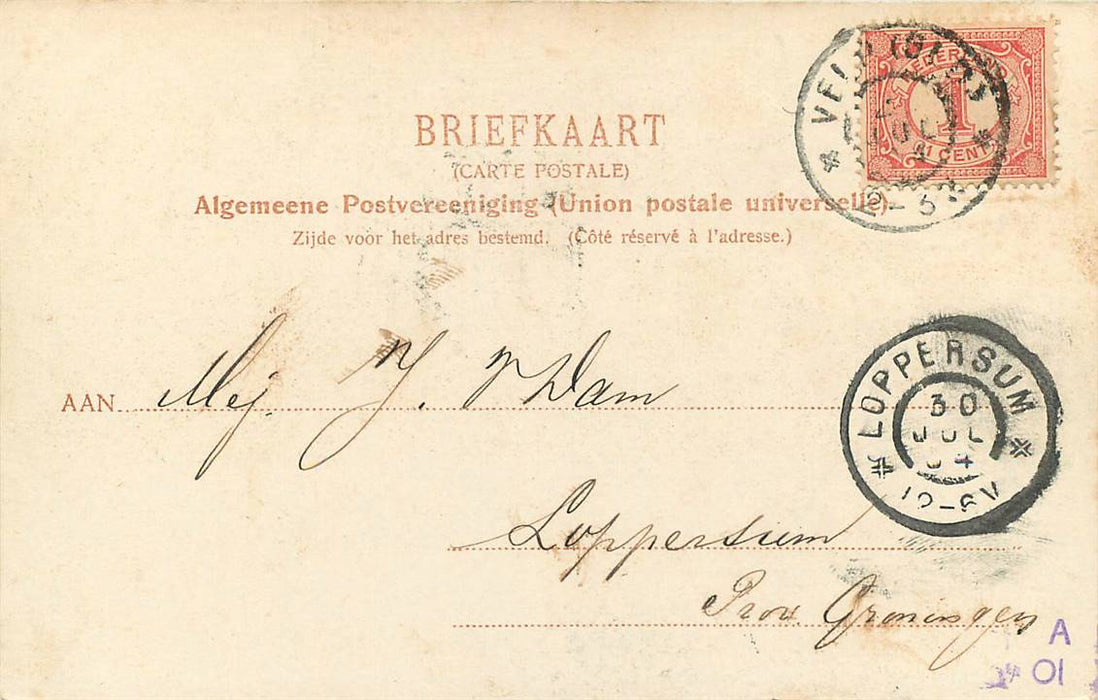 BRIEFKAART
(CARTE POSTALE)
Algemeene Postvereeniging (Union postale universelle)
Zijde voor het adres bestemd. (Côté réservé à l'adresse.)
VELP (GLD)
JUL
1
1 CENT
AAN Mej. J. v Dam
LOPPERSUM
30
JUL
04
12-6V
Loppersum
Prov. Groningen
A
01